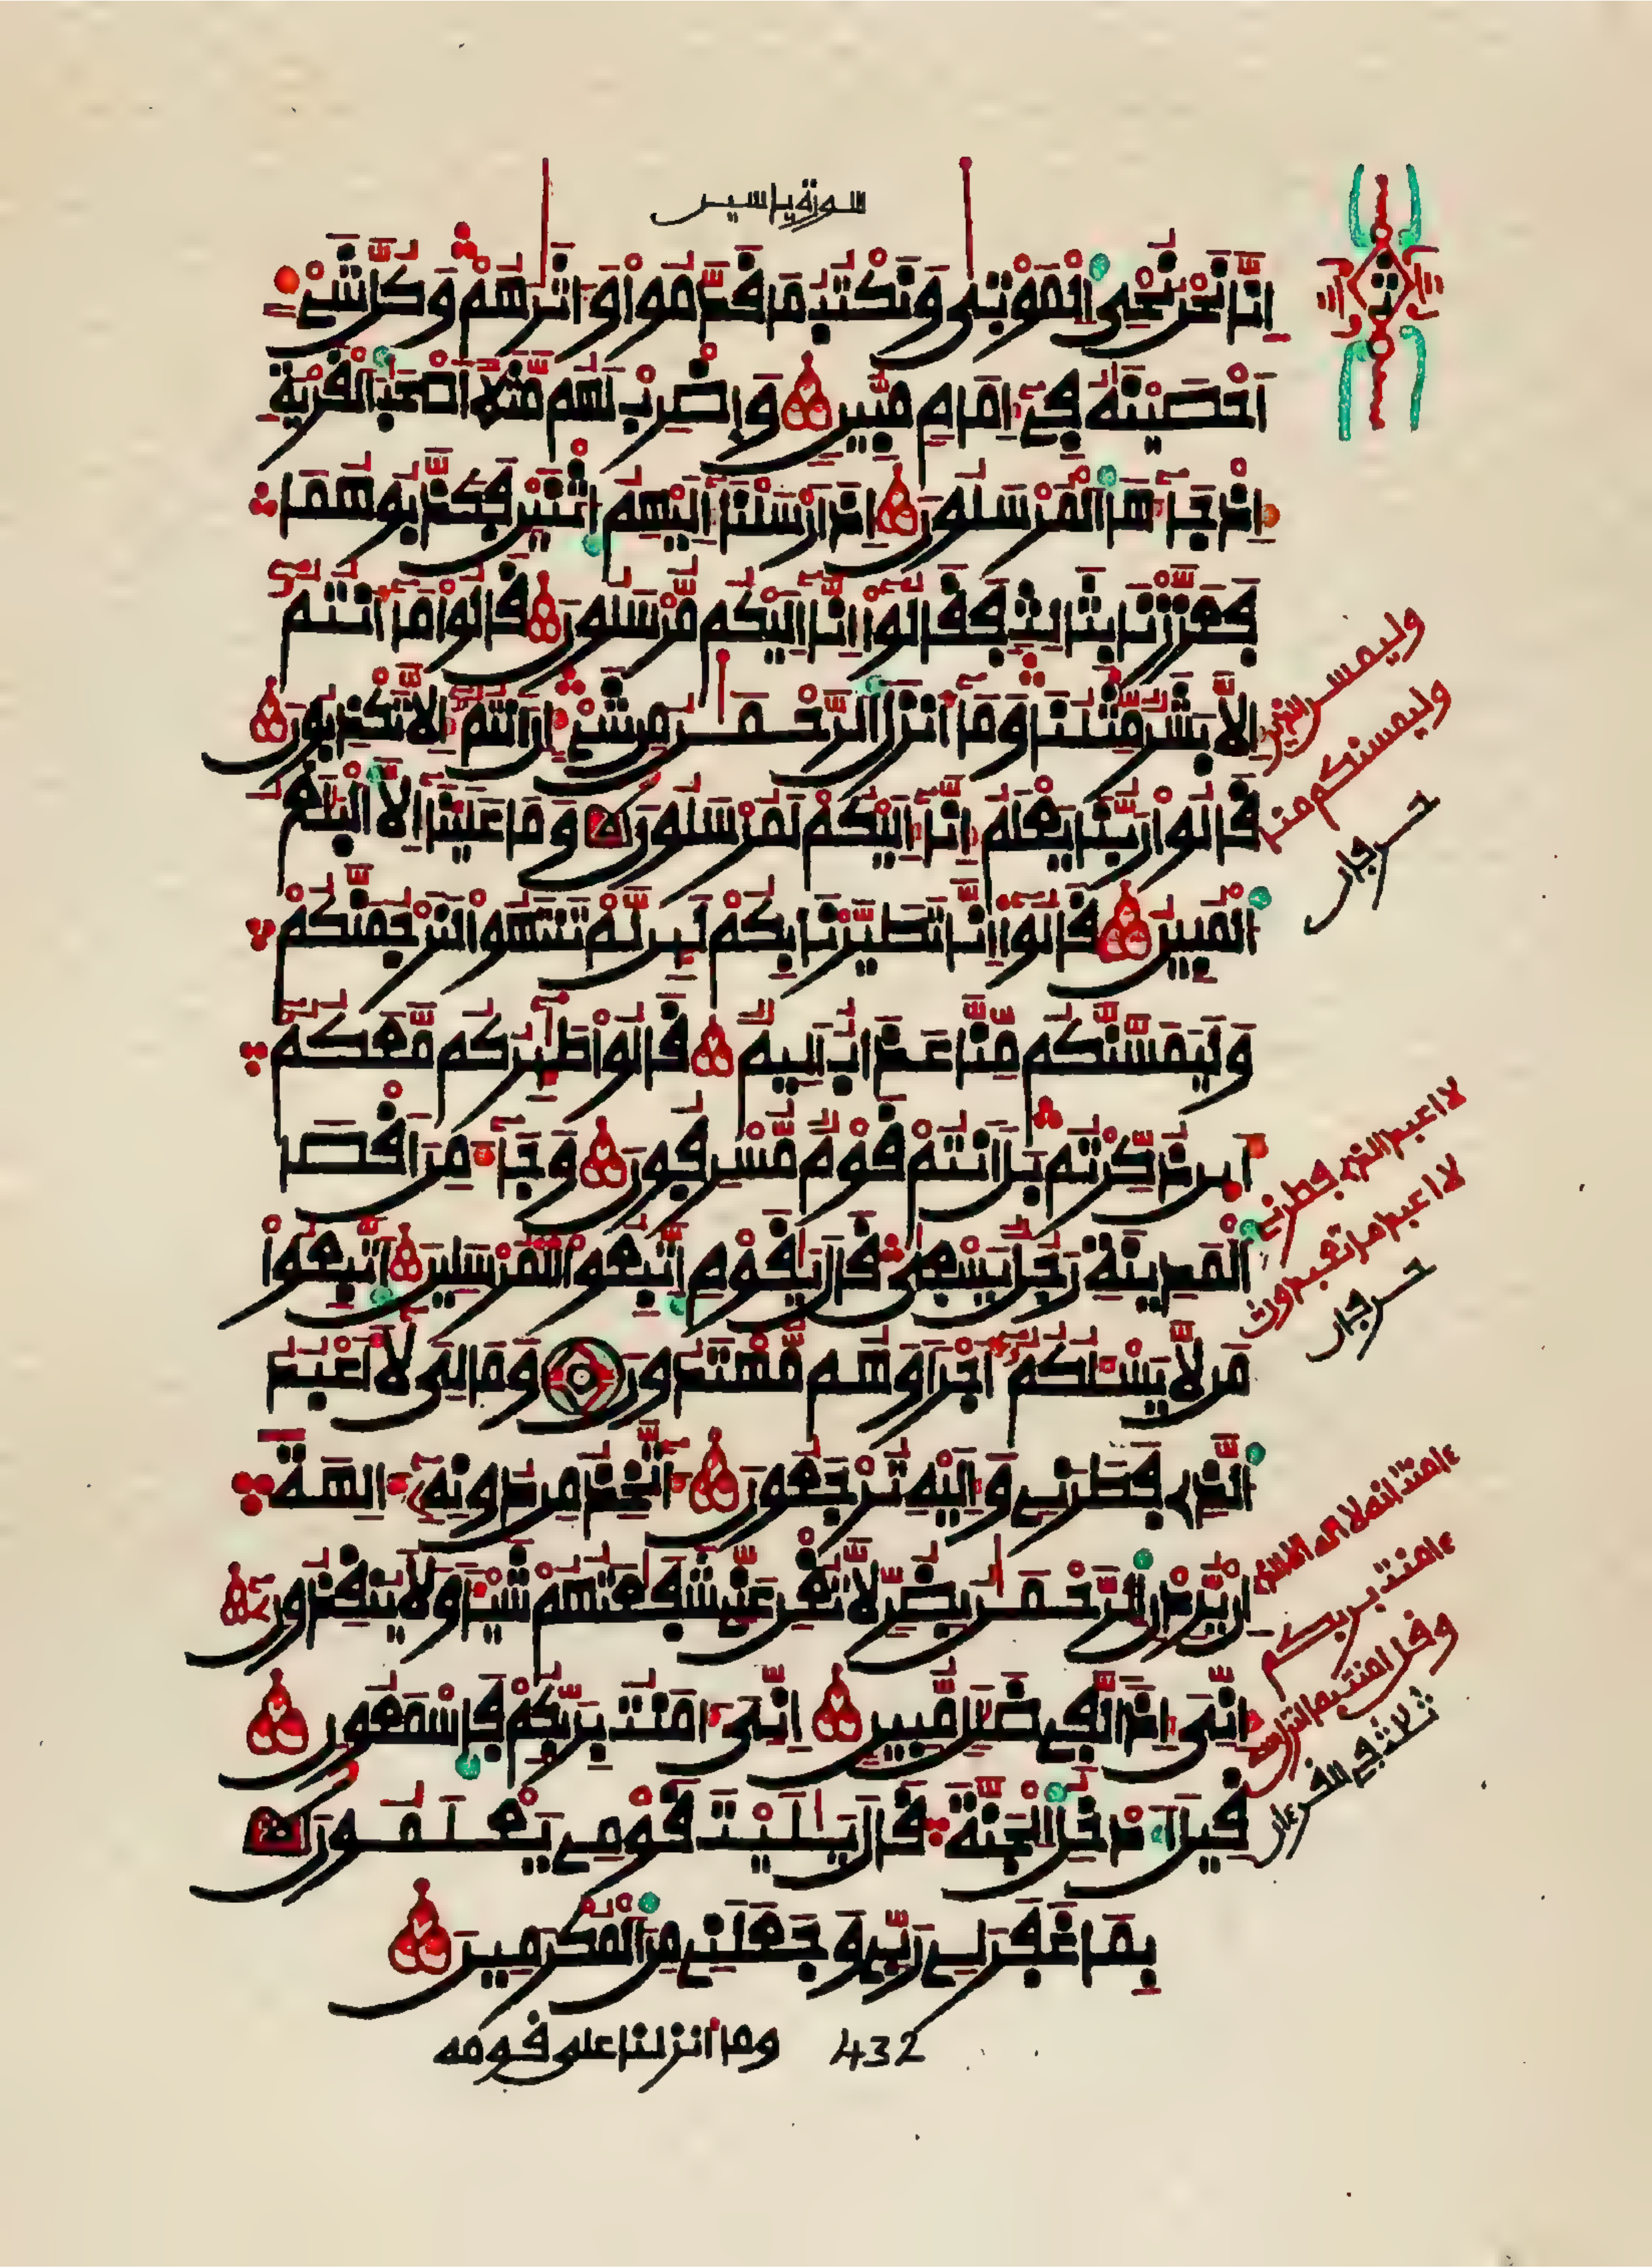 سورة ياسين
إِنَّا نَحْنُ نُحْيِ الْمَوْتَىٰ وَنَكْتُبُ مَا قَدَّمُوا وَآثَٰرَهُمْ وَكُلَّ شَيْءٍ
أَحْصَيْنَٰهُ فِي إِمَامٍ مُّبِينٍ وَاضْرِبْ لَهُم مَّثَلًا أَصْحَٰبَ الْقَرْيَةِ
إِذْ جَآءَهَا الْمُرْسَلُونَ إِذْ أَرْسَلْنَا إِلَيْهِمُ اثْنَيْنِ فَكَذَّبُوهُمَا
فَعَزَّزْنَا بِثَالِثٍ فَقَالُوا إِنَّا إِلَيْكُم مُّرْسَلُونَ قَالُوا مَا أَنتُمْ
إِلَّا بَشَرٌ مِّثْلُنَا وَمَا أَنزَلَ الرَّحْمَٰنُ مِن شَيْءٍ إِنْ أَنتُمْ إِلَّا تَكْذِبُونَ
قَالُوا رَبُّنَا يَعْلَمُ إِنَّا إِلَيْكُمْ لَمُرْسَلُونَ وَمَا عَلَيْنَا إِلَّا الْبَلَٰغُ
الْمُبِينُ قَالُوا إِنَّا تَطَيَّرْنَا بِكُمْ لَئِن لَّمْ تَنتَهُوا لَنَرْجُمَنَّكُمْ
وَلَيَمَسَّنَّكُم مِّنَّا عَذَابٌ أَلِيمٌ قَالُوا طَٰئِرُكُم مَّعَكُمْ
أَئِن ذُكِّرْتُم بَلْ أَنتُمْ قَوْمٌ مُّسْرِفُونَ وَجَآءَ مِنْ أَقْصَا
الْمَدِينَةِ رَجُلٌ يَسْعَىٰ قَالَ يَٰقَوْمِ اتَّبِعُوا الْمُرْسَلِينَ اتَّبِعُوا
مَن لَّا يَسْـَٔلُكُمْ أَجْرًا وَهُم مُّهْتَدُونَ وَمَا لِيَ لَا أَعْبُدُ
الَّذِي فَطَرَنِي وَإِلَيْهِ تُرْجَعُونَ ءَأَتَّخِذُ مِن دُونِهِ ءَالِهَةً
إِن يُرِدْنِ الرَّحْمَٰنُ بِضُرٍّ لَّا تُغْنِ عَنِّي شَفَٰعَتُهُمْ شَيْـًٔا وَلَا يُنقِذُونِ
إِنِّيَ إِذًا لَّفِي ضَلَٰلٍ مُّبِينٍ إِنِّيَ ءَامَنتُ بِرَبِّكُمْ فَاسْمَعُونِ
قِيلَ ادْخُلِ الْجَنَّةَ قَالَ يَٰلَيْتَ قَوْمِي يَعْلَمُونَ
بِمَا غَفَرَ لِي رَبِّي وَجَعَلَنِي مِنَ الْمُكْرَمِينَ
432 وما أنزلنا على قومه
ث
وليمسن الذين
وليمسنكم منا
حرجان
لا اعبد الذي فطرني
لا اعبد ما تعبدون
حرجان
ءامنت انه لا اله الا الذي
ءامنت بربكم
وقل امنت بما انزل الله
ثلاث في القرءان